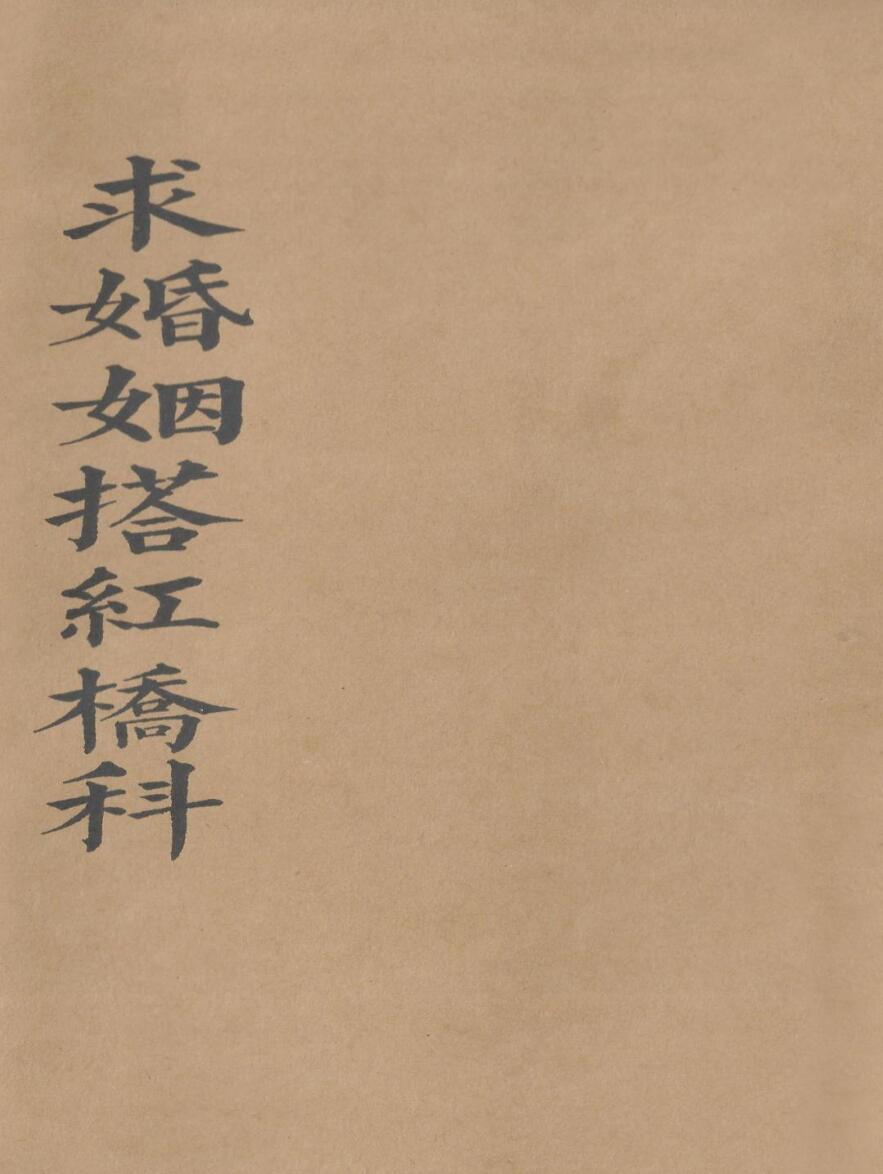 求婚姻搭紅橋科